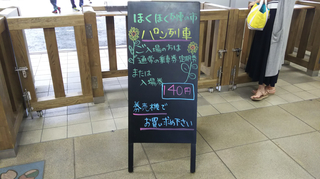 ほくほく
パン列車
ご入場の方は
通常の乗車券、定期券
または
入場券
140円
券売機で
お買い求め下さい